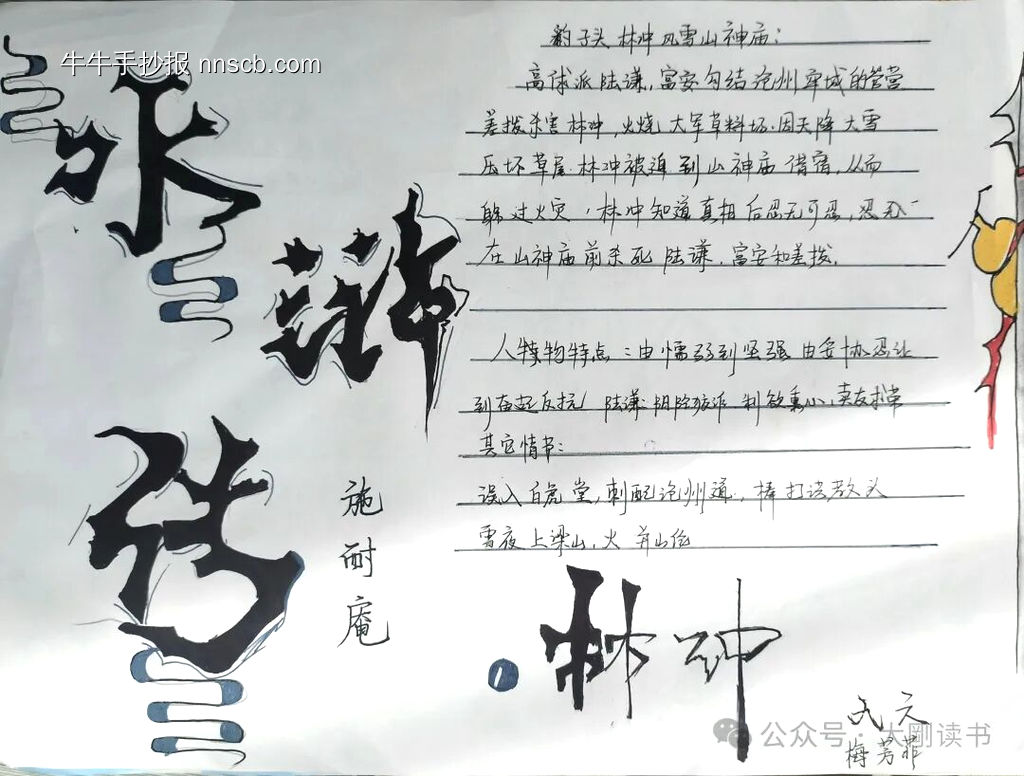 牛牛手抄报 nnscb.com
水
浒
传
施耐庵
豹子头林冲风雪山神庙：
高俅派陆谦，富安勾结沧州牢城的管营
差拨杀害林冲，火烧大军草料场．因天降大雪
压坏草屋．林冲被迫到山神庙借宿，从而
躲过火灾，林冲知道真相后忍无可忍，忍无
在山神庙前杀死陆谦．富安和差拨．
人物特点：由懦弱到坚强 由妥协忍让
到奋起反抗 陆谦：阴险 卖友求荣
其它情节：
误入白虎堂，刺配沧州道．，棒打洪教头
雪夜上梁山．火并
林冲
1
公众号：大刚读书
梅芳菲